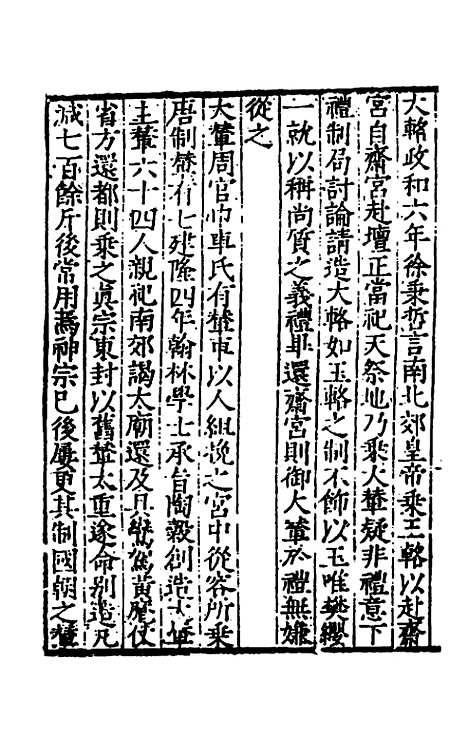 大輅政和六年徐秉哲言南北郊皇帝乘玉輅以赴齋
宮自齋宮赴壇正當祀天祭地乃乘大輦疑非禮意下
禮制局討論請造大輅如玉輅之制不飾以玉唯樊纓
一就以稱尚質之義禮畢還齋宮則御大輦於禮無嫌
從之
大輦周官巾車氏有輦車以人組挽之宮中從容所乘
唐制輦有七建隆四年翰林學士承旨陶穀創造大輦
主輦六十四人親祀南郊謁太廟還及具鸞駕黃麾仗
省方還都則乘之眞宗東封以舊輦太重遂命別造凡
減七百餘斤後常用焉神宗已後屢更其制國朝之輦